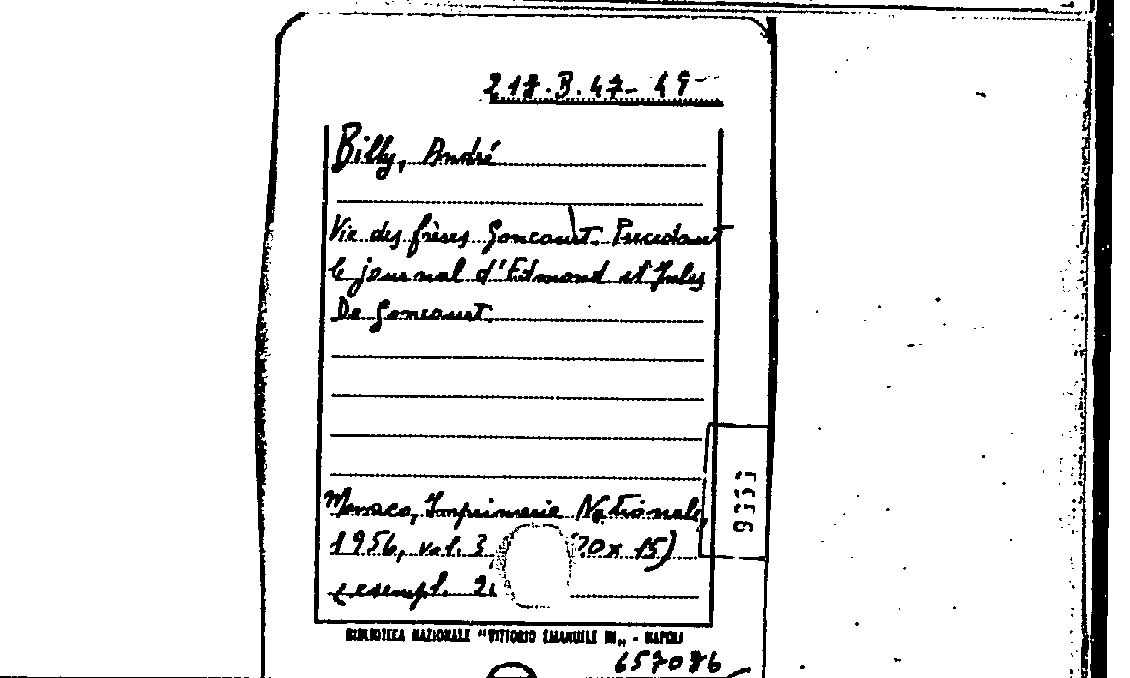 217.B.47-49
Billy, André
Vie des frères Goncourt. Precedant
le journal d'Edmond et Jules
De Goncourt.
Monaco, Imprimerie Nationale,
1956, vol. 3 (20 x 15)
esempl.
BIBLIOTECA NAZIONALE "VITTORIO EMANUELE III„ - NAPOLI
657076